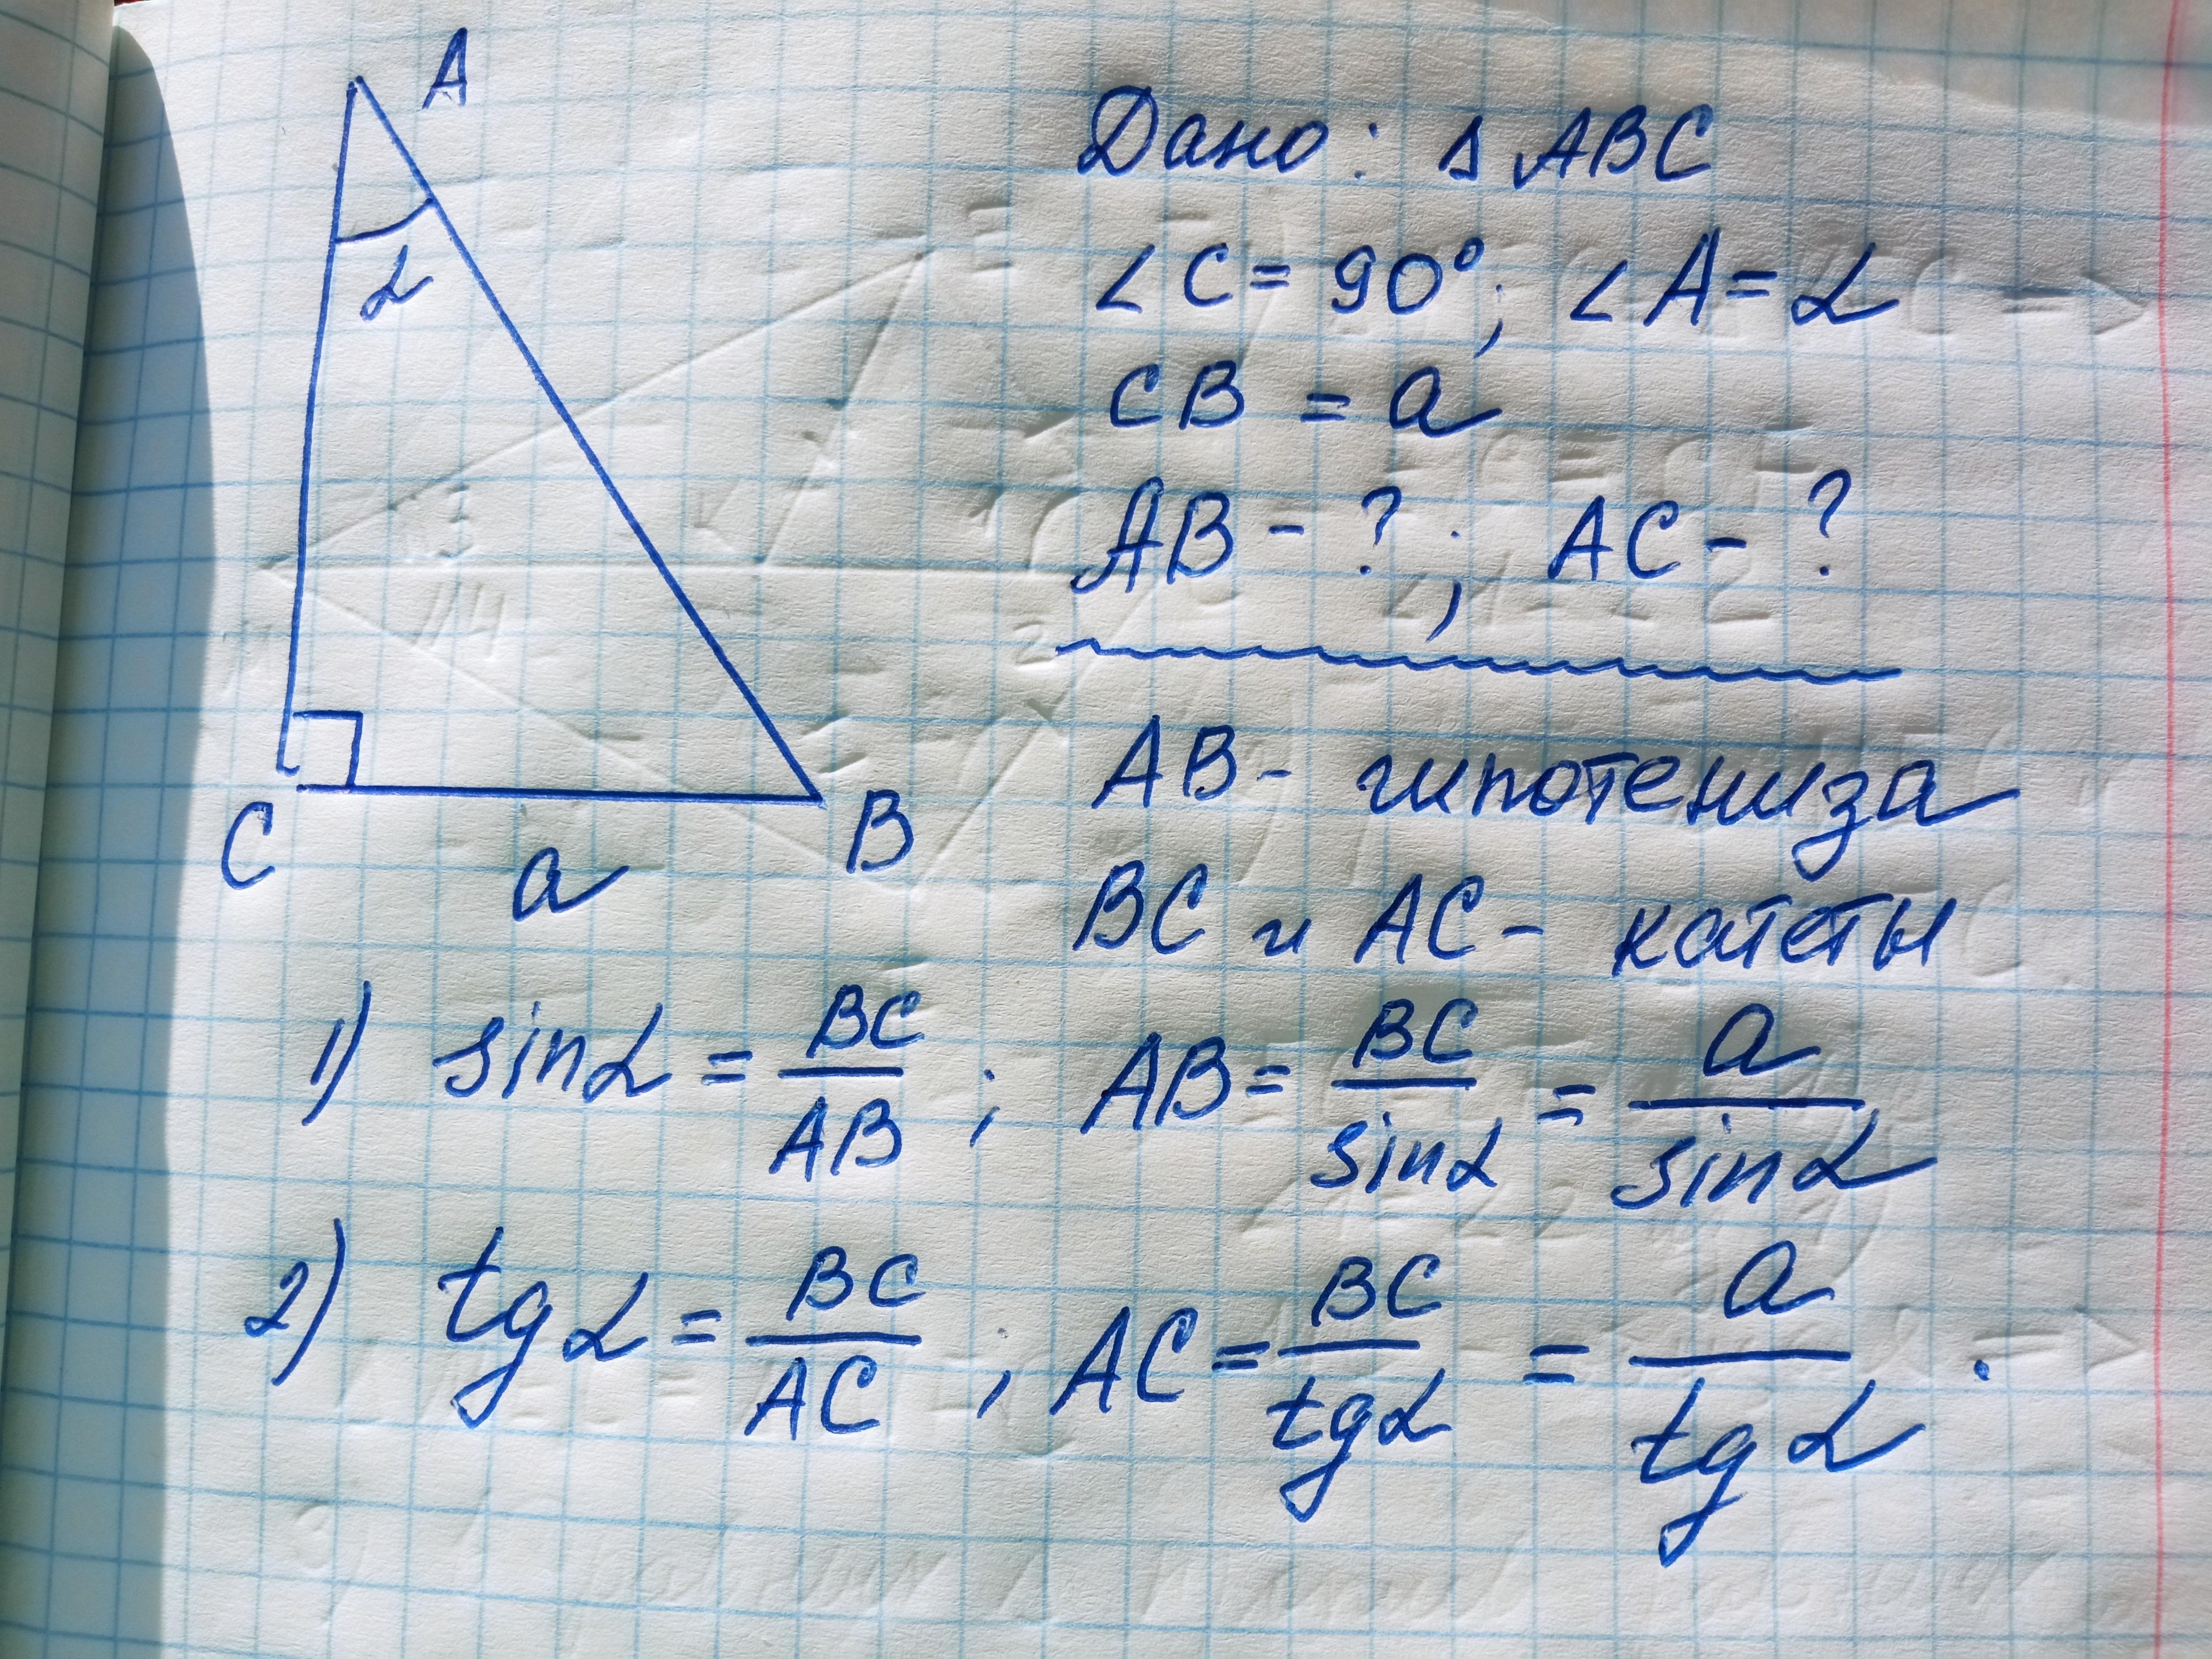 A
α
C
a
B
Дано: △ ABC
∠C = 90°; ∠A = α
CB = a
AB - ?; AC - ?
AB - гипотениза
BC и AC - катеты
1) sin α = BC/AB; AB = BC/sin α = a/sin α
2) tg α = BC/AC, AC = BC/tg α = a/tg α.